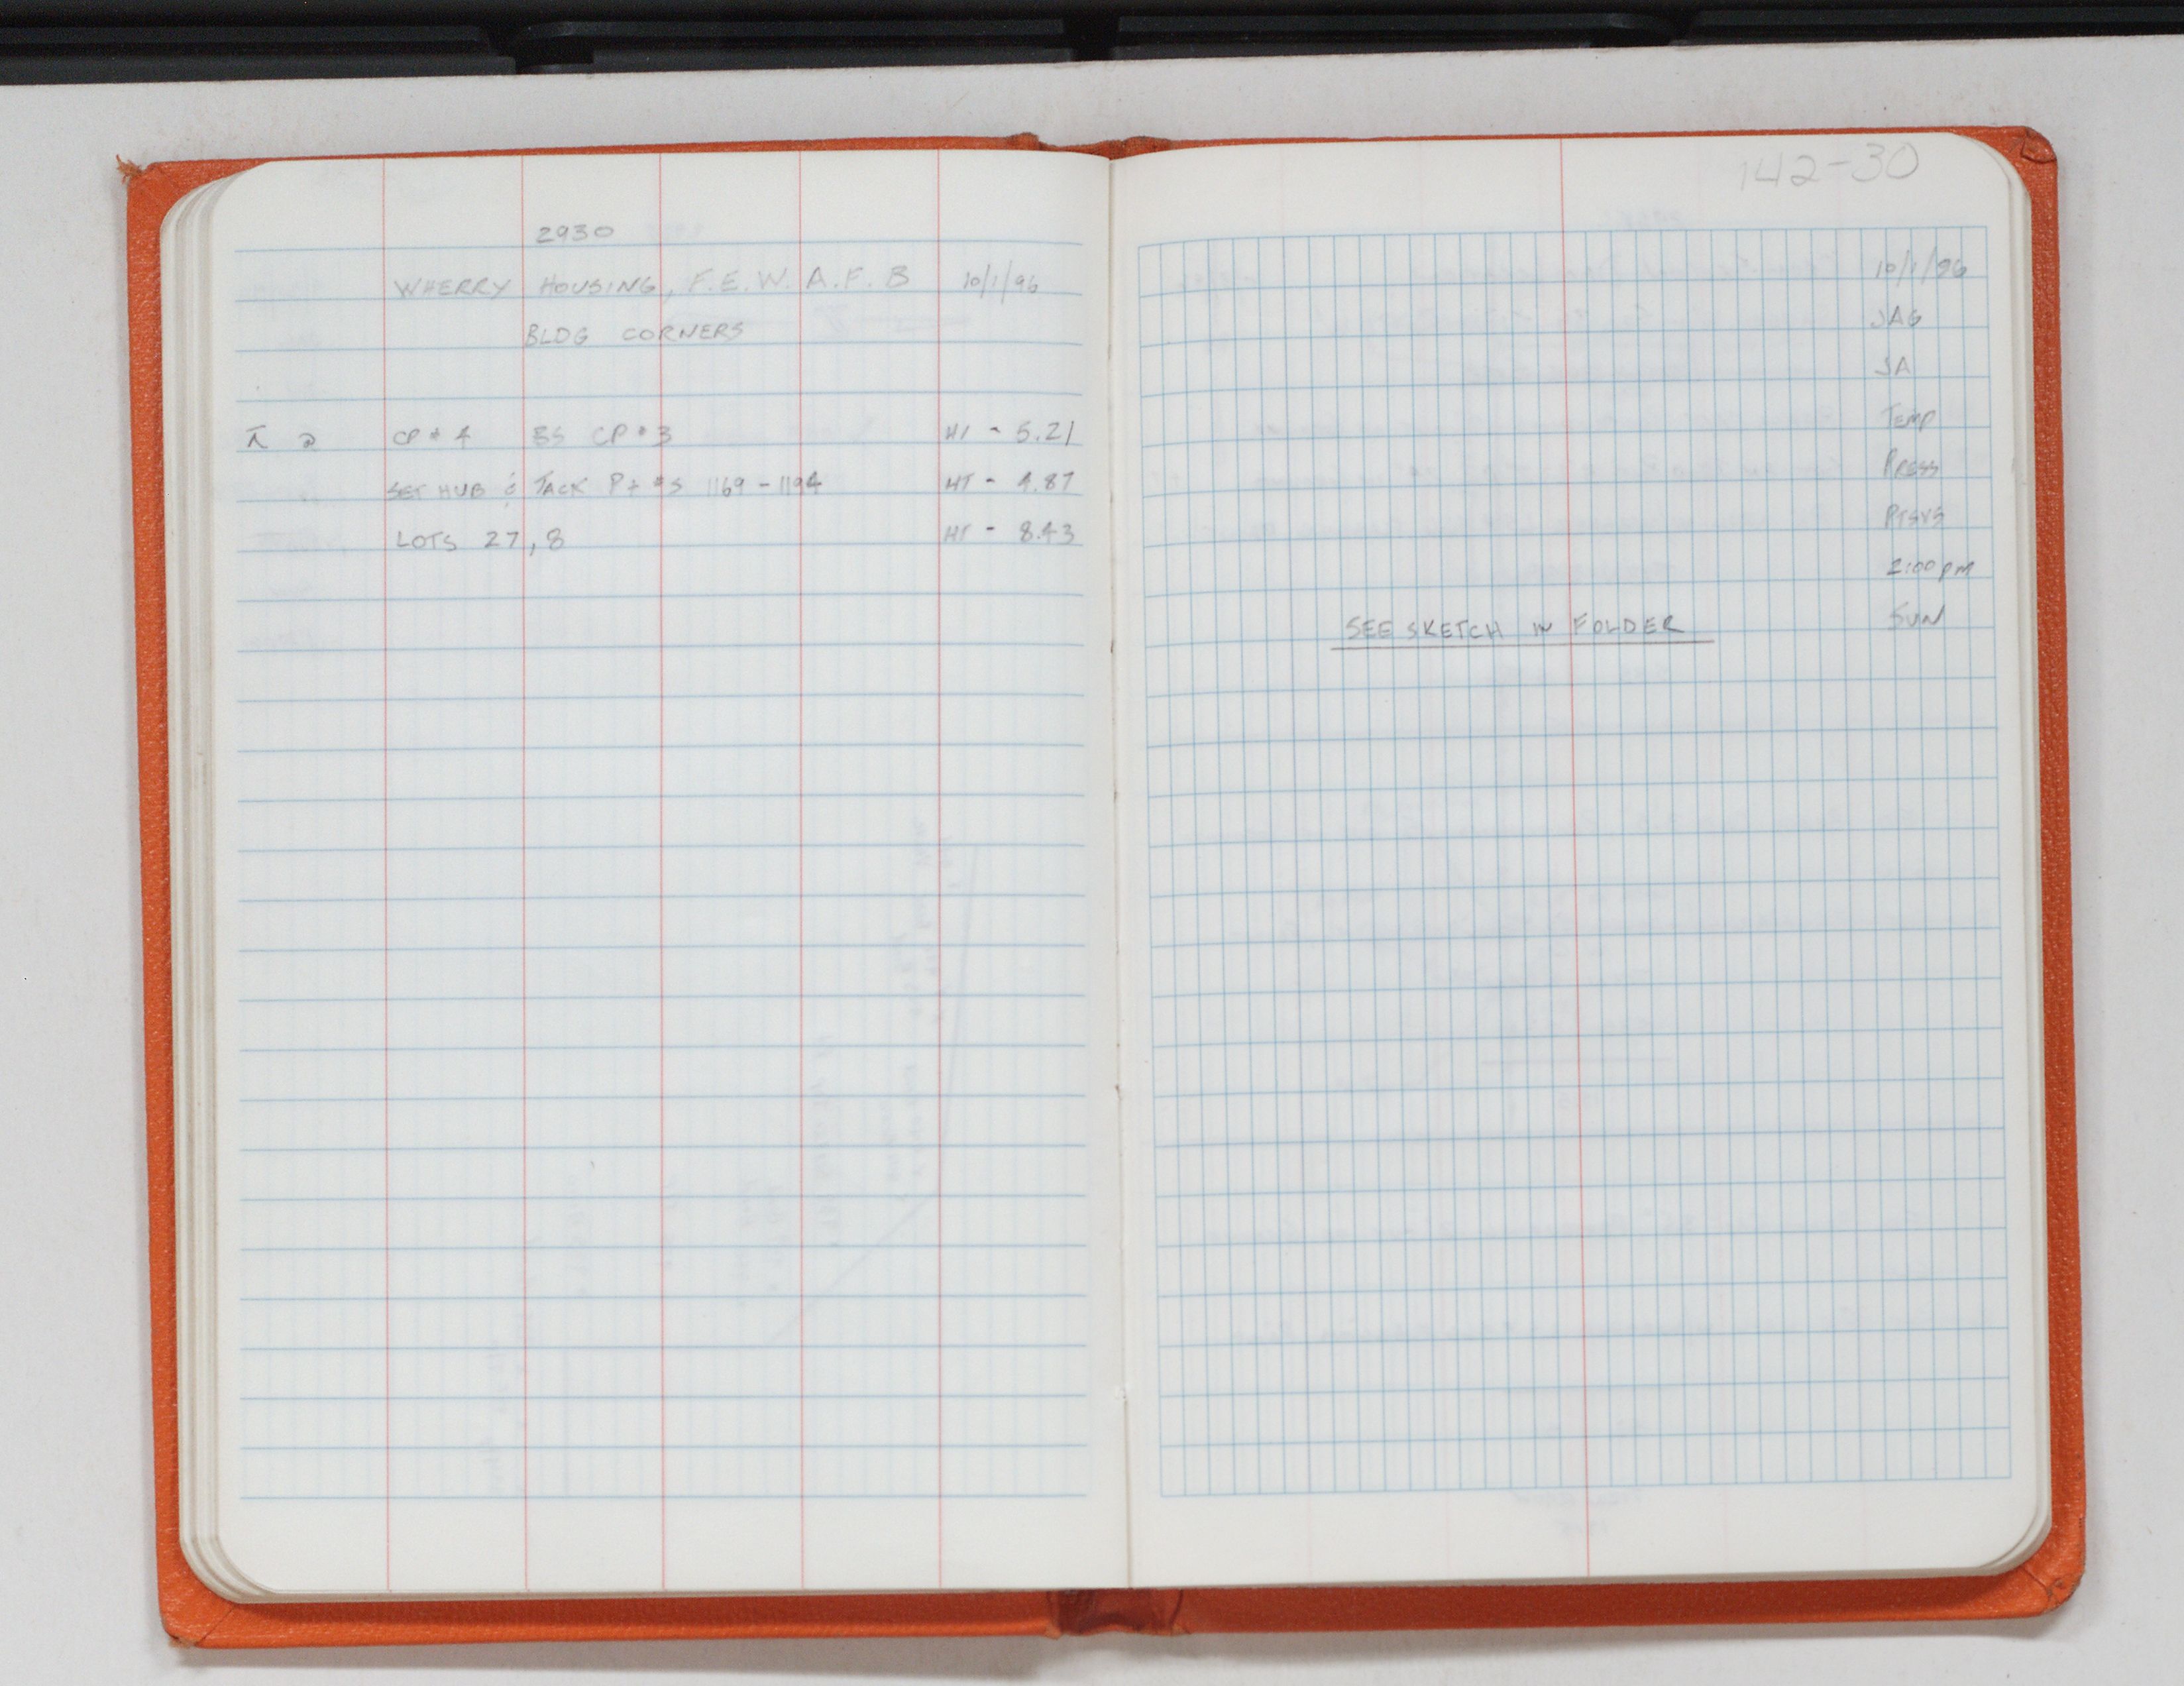 2930
WHERRY HOUSING, F.E.W. A.F.B 10/1/96
BLDG CORNERS
⊼ @ CP # 4 BS CP # 3 HI - 5.21
SET HUB & TACK Pt #S 1169 - 1194 HT - 4.87
LOTS 27, 8 HT - 8.43
142-30
10/1/96
JAG
JA
TEMP
PRESS
2:00 pm
SEE SKETCH IN FOLDER SUN